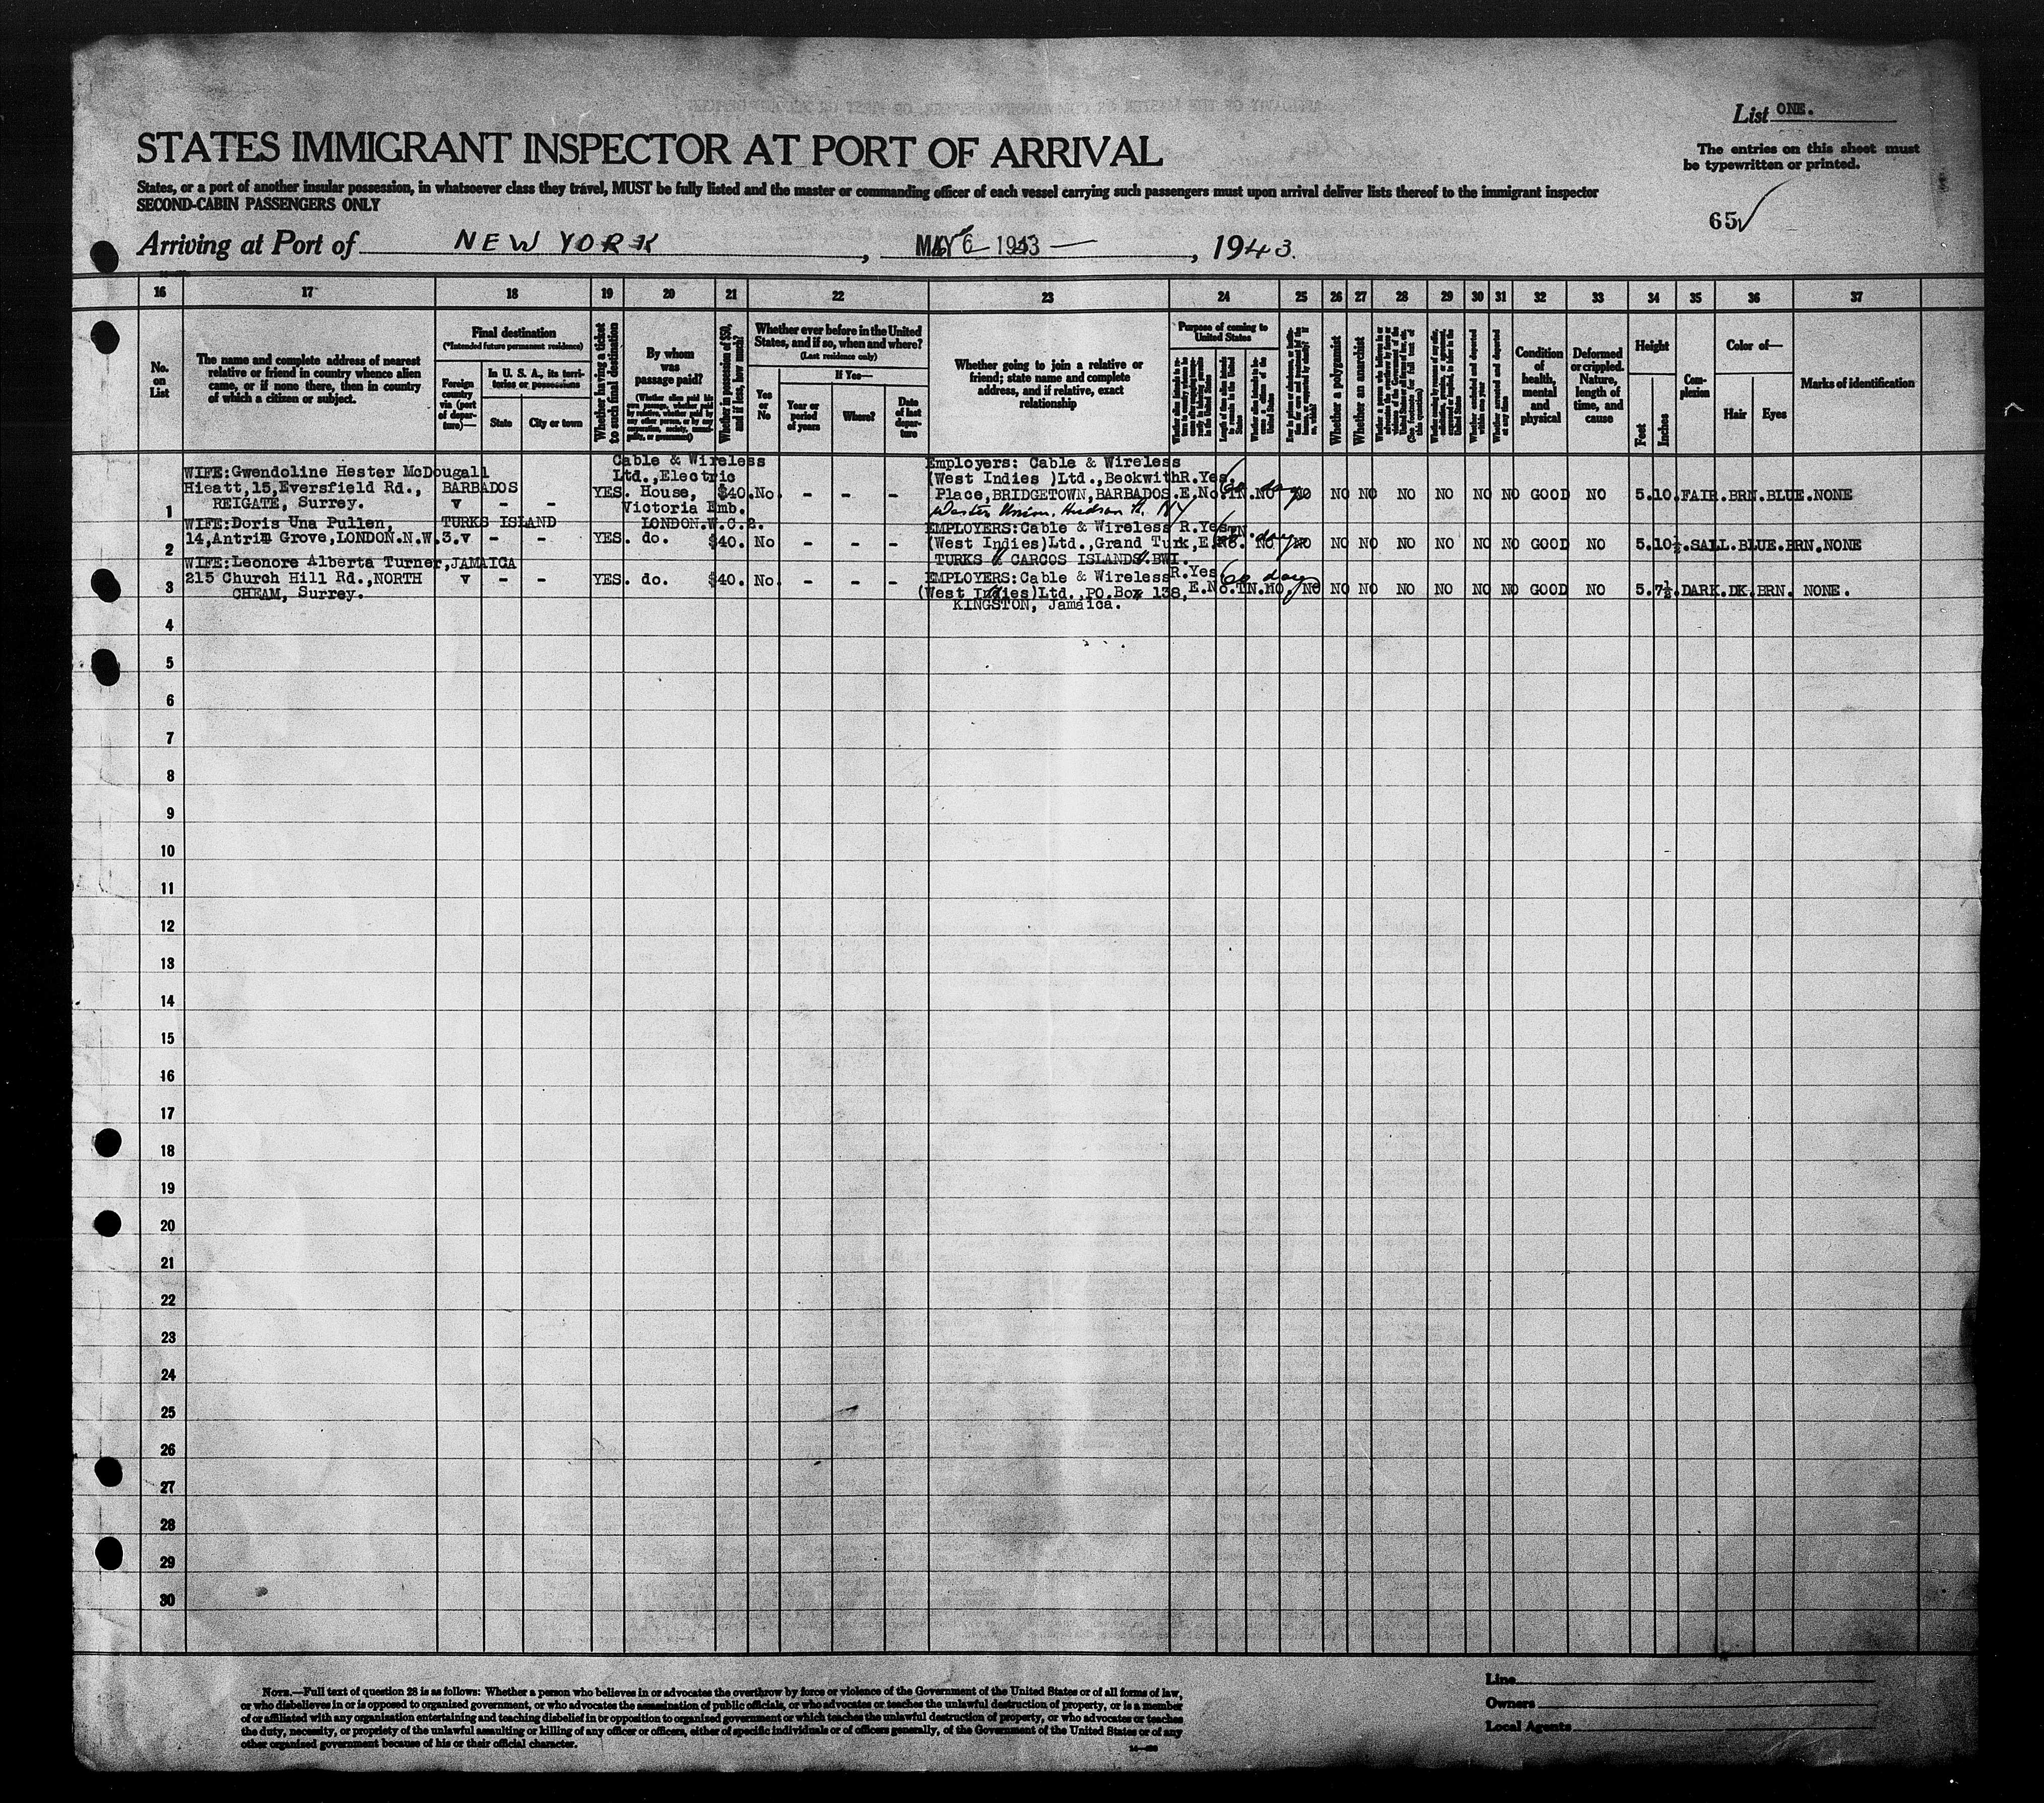 List ONE.
The entries on this sheet must
be typewritten or printed.
STATES IMMIGRANT INSPECTOR AT PORT OF ARRIVAL
States, or a port of another insular possession, in whatsoever class they travel, MUST be fully listed and the master or commanding officer of each vessel carrying such passengers must upon arrival deliver lists thereof to the immigrant inspector
SECOND-CABIN PASSENGERS ONLY
65
Arriving at Port of NEW YORK, MAY 6 1943, 1943.
16 17 18 19 20 21 22 23 24 25 26 27 28 29 30 31 32 33 34 35 36 37
No.
on
List
The name and complete address of nearest
relative or friend in country whence alien
came, or if none there, then in country
of which a citizen or subject.
Final destination
(*Intended future permanent residence)
Foreign
country
via (port
of depar-
ture)—
In U. S. A., its terri-
tories or possessions
State
City or town
Whether having a ticket
to such final destination
By whom
was
passage paid?
(Whether alien paid his
own passage, whether paid
by relative, whether paid by
any other person, or by any
corporation, society, munici-
pality, or government)
Whether in possession of $50,
and if less, how much?
Whether ever before in the United
States, and if so, when and where?
(Last residence only)
Yes
or
No
If Yes—
Year or
period
of years
Where?
Date
of last
depar-
ture
Whether going to join a relative or
friend; state name and complete
address, and if relative, exact
relationship
Purpose of coming to
United States
Whether a polygamist
Whether an anarchist
Condition
of
health,
mental
and
physical
Deformed
or crippled.
Nature,
length of
time, and
cause
Height
Feet
Inches
Com-
plexion
Color of—
Hair
Eyes
Marks of identification
1
WIFE:Gwendoline Hester McDougall
Hieatt,15,Eversfield Rd.,
REIGATE, Surrey.
BARBADOS
v - -
YES.
Cable & Wireless
Ltd.,Electric
House,
Victoria Emb.
LONDON.W.C.2.
$40. No. - - -
Employers: Cable & Wireless
(West Indies )Ltd.,Beckwith
Place,BRIDGETOWN,BARBADOS.
Western Union, Hudson St. NY
R.Yes.
E.No.TN.NO
60 days
NO NO NO NO NO NO NO GOOD NO 5.10.FAIR.BRN.BLUE.NONE
2
WIFE:Doris Una Pullen,
14,Antrim Grove,LONDON.N.W.3.
TURKS ISLAND
v - -
YES. do. $40. No - - -
EMPLOYERS:Cable & Wireless
(West Indies)Ltd.,Grand Turk,
TURKS & CARCOS ISLANDS.BWI.
R.Yes
E.No. TN. NO
60 days
NO NO NO NO NO NO NO GOOD NO 5.10½.SALL.BLUE.BRN.NONE
3
WIFE:Leonore Alberta Turner,
215 Church Hill Rd.,NORTH
CHEAM, Surrey.
JAMAICA
v - -
YES. do. $40. No. - - -
EMPLOYERS:Cable & Wireless
(West Indies)Ltd.,PO.Box 138,
KINGSTON, Jamaica.
R.Yes
E.No.TN.NO.
60 days
NO NO NO NO NO NO NO GOOD NO 5.7½.DARK.DK.BRN. NONE.
4
5
6
7
8
9
10
11
12
13
14
15
16
17
18
19
20
21
22
23
24
25
26
27
28
29
30
NOTE.—Full text of question 28 is as follows: Whether a person who believes in or advocates the overthrow by force or violence of the Government of the United States or of all forms of law,
or who disbelieves in or is opposed to organized government, or who advocates the assassination of public officials, or who advocates or teaches the unlawful destruction of property, or is a member
of or affiliated with any organization entertaining and teaching disbelief in or opposition to organized government or which teaches the unlawful destruction of property, or who advocates or teaches
the duty, necessity, or propriety of the unlawful assaulting or killing of any officer or officers, either of specific individuals or of officers generally, of the Government of the United States or of any
other organized government because of his or their official character.
Line
Owners
Local Agents